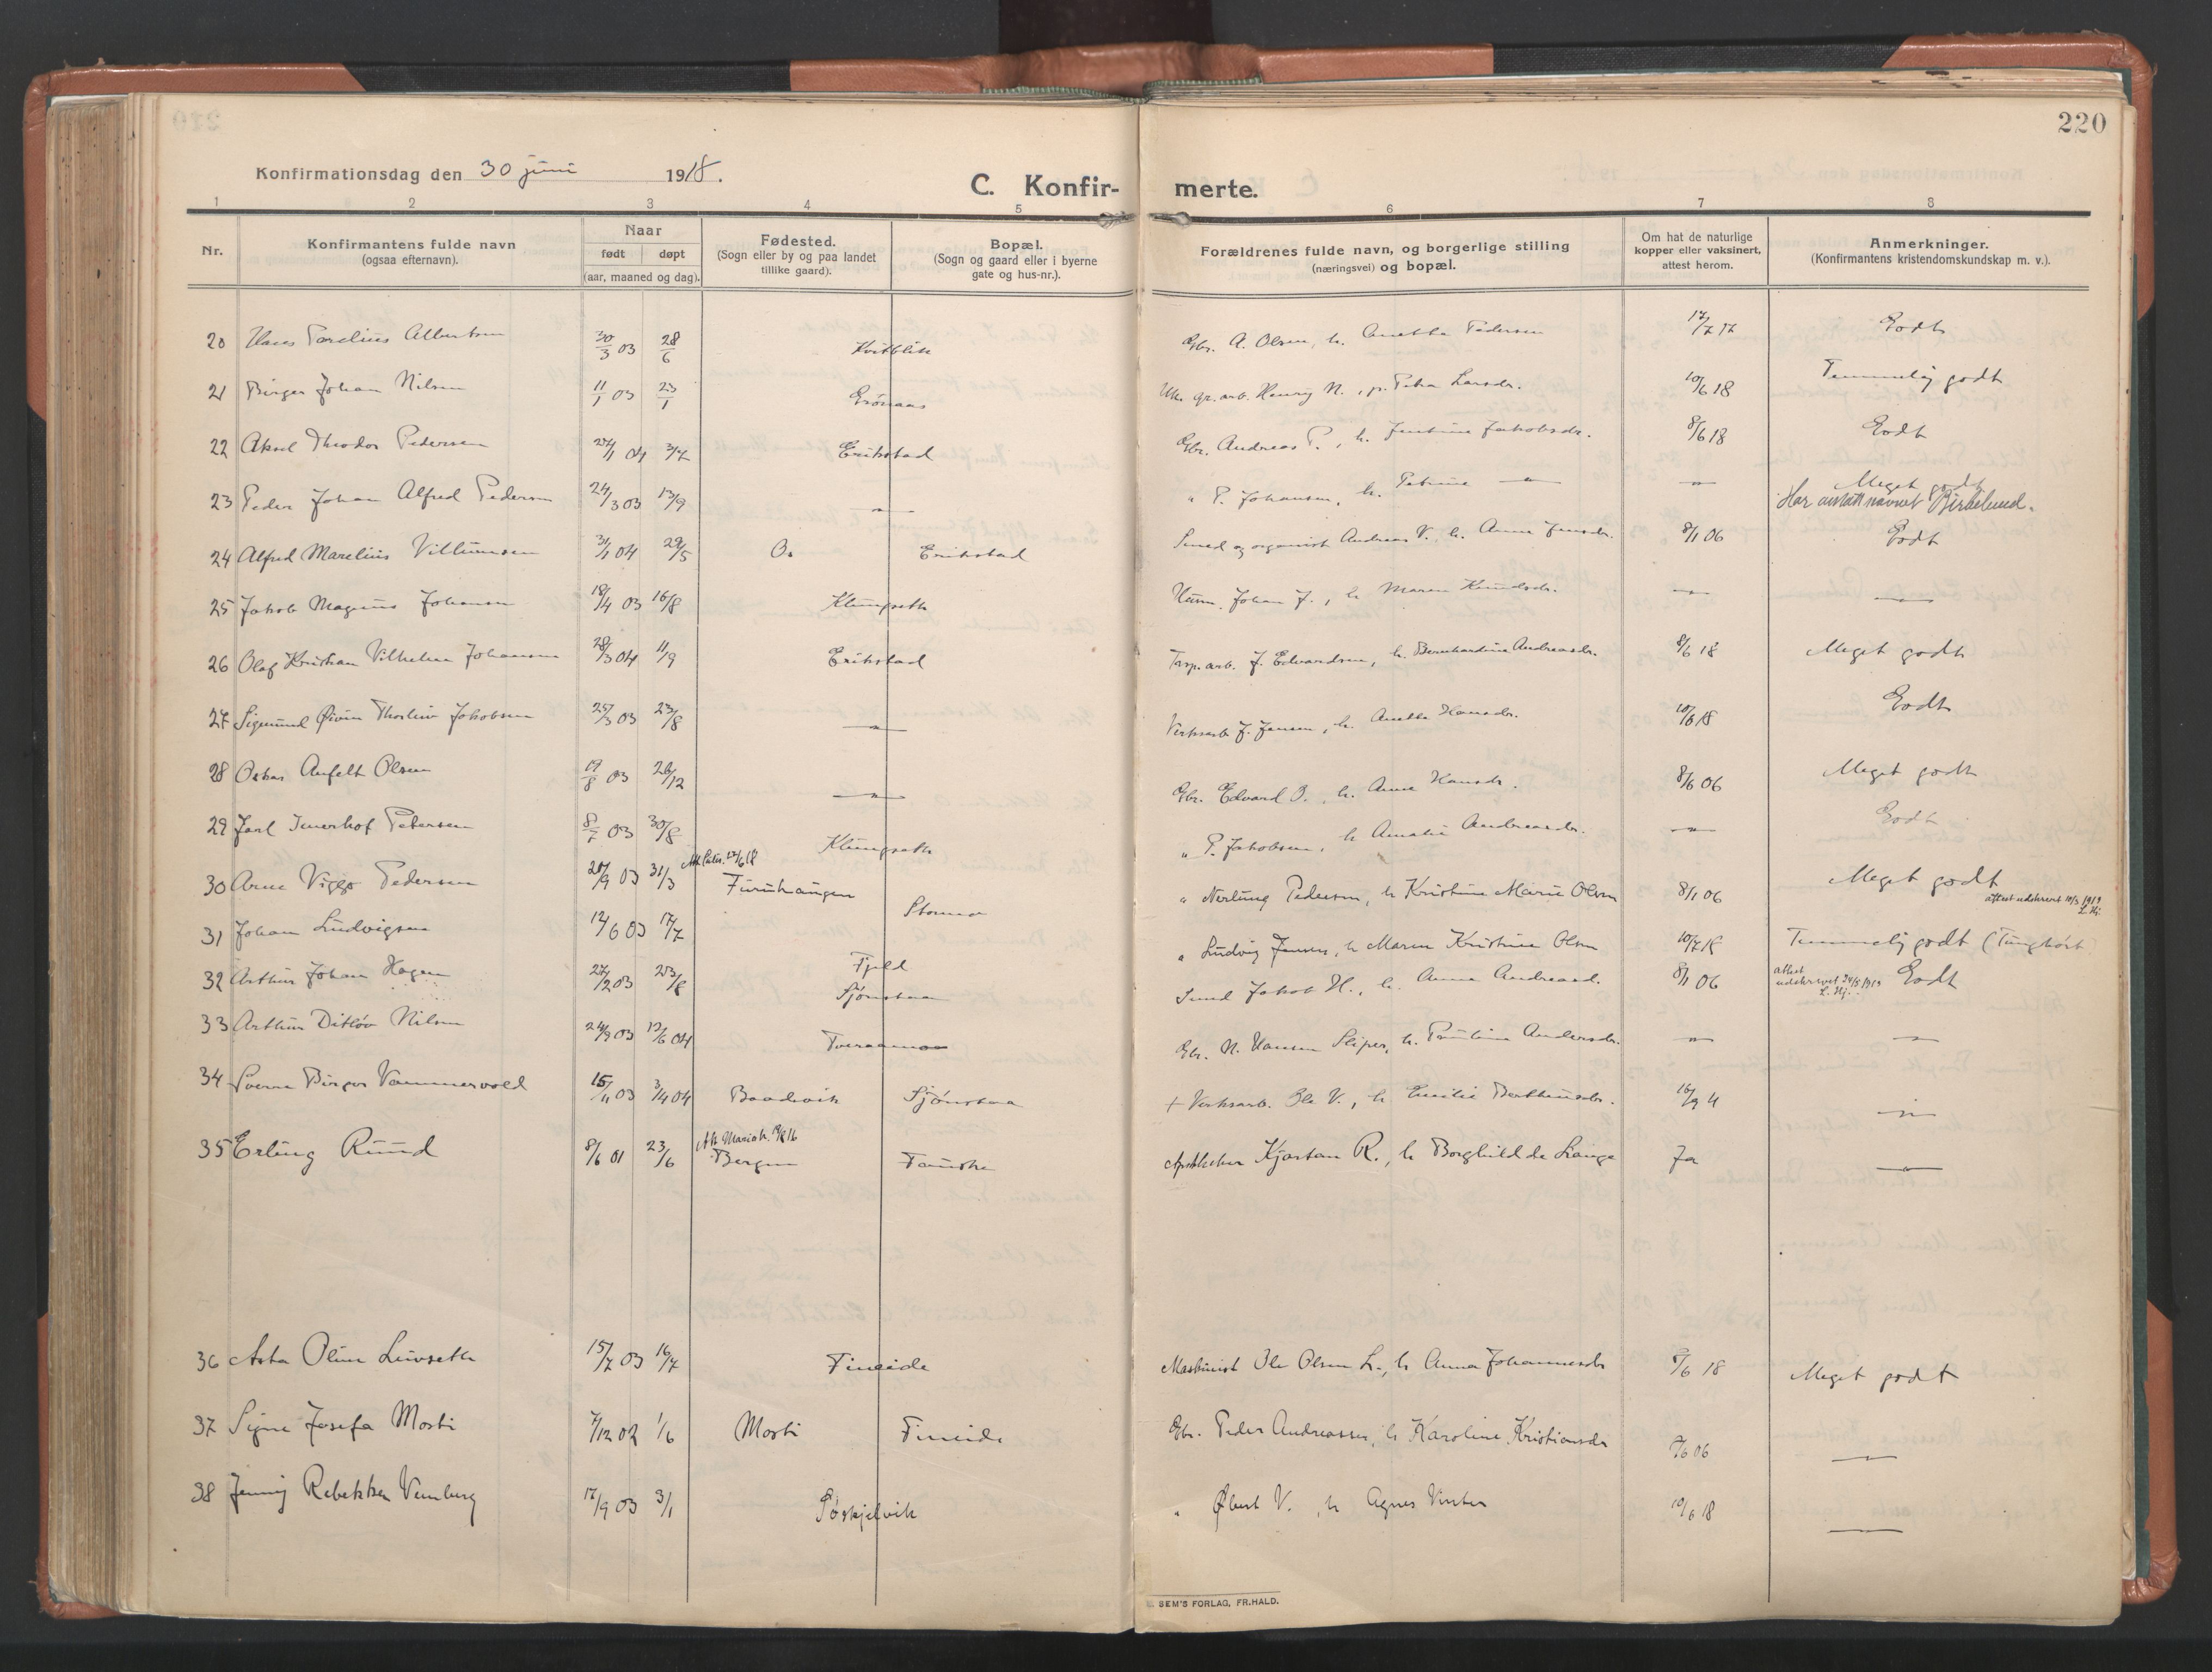 220
Konfirmationsdag den 30 juni 1918.
C. Konfir- merte.
1 2 3 4 5 6 7 8
Nr. Konfirmantens fulde navn (ogsaa efternavn). Naar født døpt (aar, maaned og dag). Fødested. (Sogn eller by og paa landet tillike gaard). Bopæl. (Sogn og gaard eller i byerne gate og hus-nr.). Forældrenes fulde navn, og borgerlige stilling (næringsvei) og bopæl. Om hat de naturlige kopper eller vaksinert, attest herom. Anmerkninger. (Konfirmantens kristendomskundskap m. v.).
20 Hans Parelius Albertsen 30/3 03 28/6 Kvitblik Gbr. A. Olsen, h. Anetta Pedersen 17/7 17 Godt
21 Birger Johan Nilsen 11/1 03 23/1 Grønaas Uk. gr.arb. Henrig N., p. Petra Larsdr. 10/6 18 Temmelig godt
22 Aksel Theodor Pedersen 24/1 04 3/7 Erikstad Gbr. Andreas P., h. Jentine Jakobsdr. 8/6 18 Godt
23 Peder Johan Alfred Pedersen 24/3 03 13/9 —"— " P. Johansen, h. Petrine —"— —"— Meget godt
Har antatt navnet Birkelund.
24 Alfred Marelius Villumsen 31/1 04 29/5 Os Erikstad Smed og organist Andreas V., h. Anna Jensdr. 8/1 06 Godt
25 Jakob Magnus Johansen 18/4 03 16/8 Klungseth Husm. Johan J., h. Maren Knudsdr. —"— —"—
26 Olaf Kristian Vilhelm Johansen 28/3 04 11/9 Erikstad Tasp.arb. J. Edvardsen, h. Bernhardine Andreasdr. 8/6 18 Meget godt
27 Sigmund Øivin Thorleiv Jakobsen 25/3 03 23/8 —"— Verksarb J. Jensen, h. Anette Hansdr. 10/6 18 Godt
28 Oskar Anfelt Olsen 19/8 03 26/12 —"— Gbr. Edvard O., h. Anna Hansdr. 8/6 06 Meget godt
29 Jarl Imerhof Petersen 8/7 03 30/8 Klungseth " P. Jakobsen, h Amalie Andreasdr. —"— Godt
30 Arne Viggo Pedersen 20/9 03 31/3 Furuhaugen " Nerling Pedersen, h Kristine Marie Olsen 8/1 06 Meget godt
attest udskrevet 10/3 1919 L. Hj.
31 Johan Ludvigsen 12/6 03 17/7 Stormo " Ludvig Jensen, h Maren Kristine Olsen 10/7 18 Temmelig godt (Tunghørt)
32 Arthur Johan Hagen 27/2 03 23/8 Fjeld Sjønstaa Smed Jakob H., h. Anna Andreasd. 8/1 06 attest udskrevet 24/5 1919 L. Hj. Godt
33 Arthur Ditløv Nilsen 24/9 03 19/6 04 Tveraamo Gbr. N. Hansen Sliper, h. Pauline Andersdr. —"— —"—
34 Sverre Birger Vammervold 15/11 03 3/4 04 Baadsvik Sjønstaa + Verksarb. Ole V., h. Emilie Berthinsdr. 16/9 4 —"—
35 Erling Ruud 8/6 01 23/6 Att Mariak. 19/6 16 Bergen Fauske Apotheker Kjartan R., h Borghild de Lange Ja —"—
36 Asta Oline Leivseth 15/7 03 16/7 Fineide Maskinist Ole Olsen L., h Anna Johannesdr 8/6 18 Meget godt
37 Signe Josefa Mosti 7/12 02 1/6 Mosti Fineide Gbr. Peder Andreassen, h Karoline Kristiansdr 8/6 06 —"—
38 Jenny Rebekka Vemberg 17/9 03 3/1 Søskjelvik " Øbert V., h Agnes Vinter 10/6 18 —"—
SEM'S FORLAG, FR.HALD.